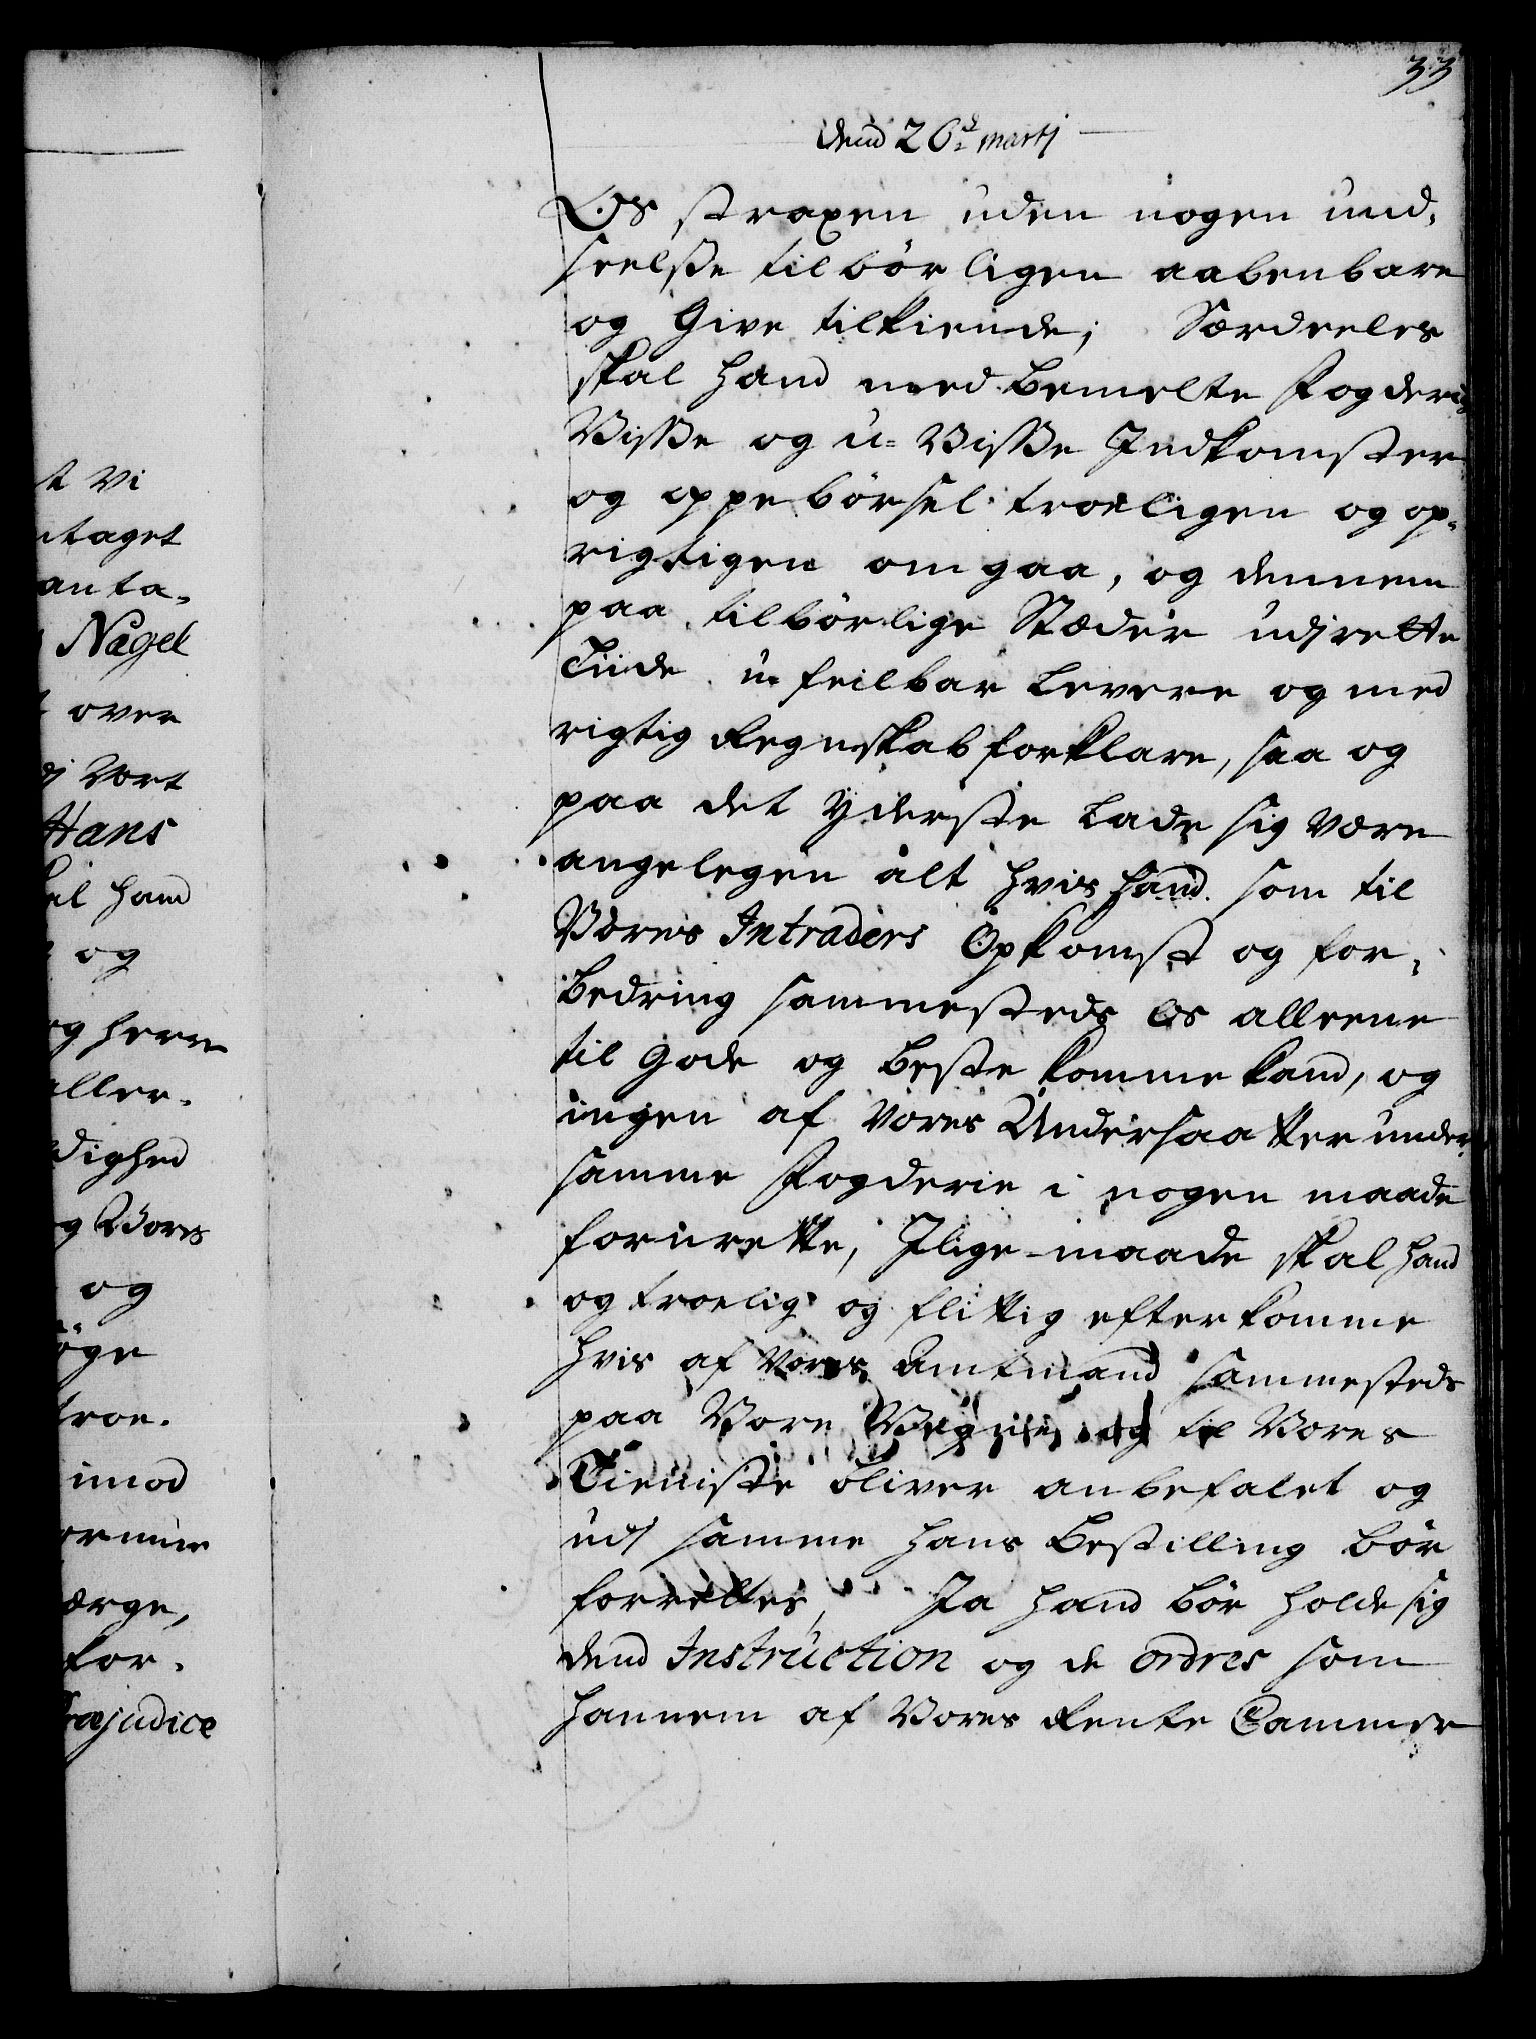 33
dend 26d martj
Os straxen uden nogen und,
seelsse tilbørligen aabenbare
og Give tilkiende; Særdeeles
skal hand med bemelte Fogderies
Visse og u=Visse Indkomster
og oppebørsel troeligen og op,
rigtigen omgaa, og dennem
paa tilbørlige Stæder udj rette
Tiide u-feilbar Levere og med
rigtig Regenskab forklare, saa og
paa det yderste Lade sig være
angelegen alt hvis hand som til
Vores Intraders Opkomst og for,
bedring sammesteds Os alleene
til Gode og beste komme kand, og
ingen af vores Undersaatter under
samme Fogderie i nogen maade
forurette, Jlige-maade skal hand
og troelig og flittig efterkomme
hvis af Vores Amtmand sammesteds
paa Vore Vegne og til Vores
Tieniste bliver anbefalet og
udj samme hans bestilling bør
forrettes, Ja hand bør holde sig
dend Instruction og de ordres som
hannem af Vores Rente Cammer
t Vi
taget
anta,
Nagel
over
j Vort
Hans
al hand
og
og herre
aller,
dighed
og Vores
og
øge
troe.
imod
ærge,
for,
Præjudice